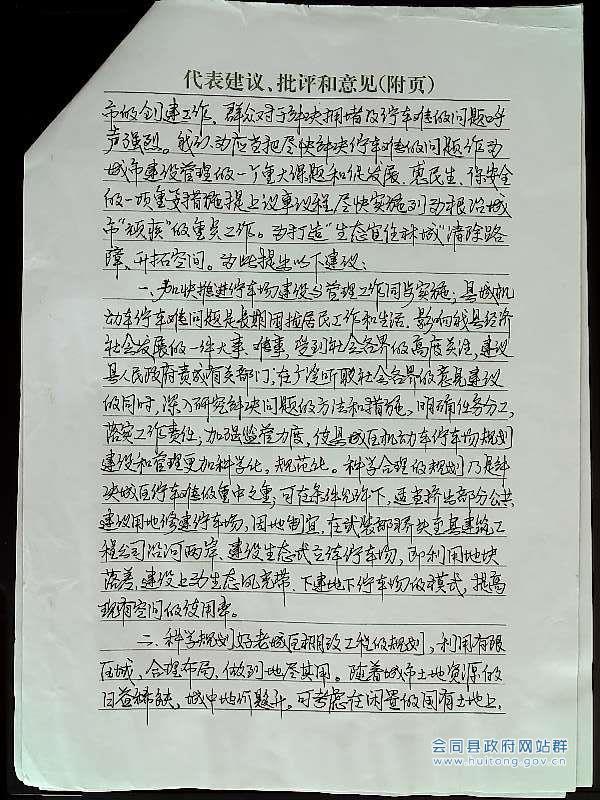 代表建议、批评和意见(附页)
市的创建工作，群众对于解决拥堵及停车难的问题呼
声强烈。我们应当把尽快解决停车难的问题作为
城市建设管理的一个重大课题和促发展、惠民生、保安全
的一项重要措施提上议事议程，尽快实施列为根治城
市“顽疾”的重点工作。为打造“生态宜居林城”清除路
障、开拓空间。为此提出以下建议：
一、加快推进停车场建设与管理工作同步实施；县城机
动车停车难问题是长期困扰居民工作和生活、影响我县经济
社会发展的一件大事、难事，受到社会各界的高度关注，建议
县人民政府责成有关部门，在广泛听取社会各界的意见建议
的同时，深入研究解决问题的方法和措施，明确任务分工，
落实工作责任，加强监管力度，使县城区机动车停车场规划
建设和管理更加科学化、规范化。科学合理的规划乃是解
决城区停车难的重中之重；可在条件允许下，适当挤出部分公共
建设用地修建停车场，因地制宜，在武装部桥头至县建筑工
程公司沿河两岸，建设生态式立体停车场，即利用地块
落差，建设上为生态风光带、下建地下停车场的模式，提高
现有空间的效用率。
二、科学规划好老城区棚改工程的规划，利用有限
区域、合理布局，做到地尽其用。随着城市土地资源的
日益稀缺，城中地价趋升。可考虑在闲置的国有土地上，
会同县政府网站群
www.huitong.gov.cn